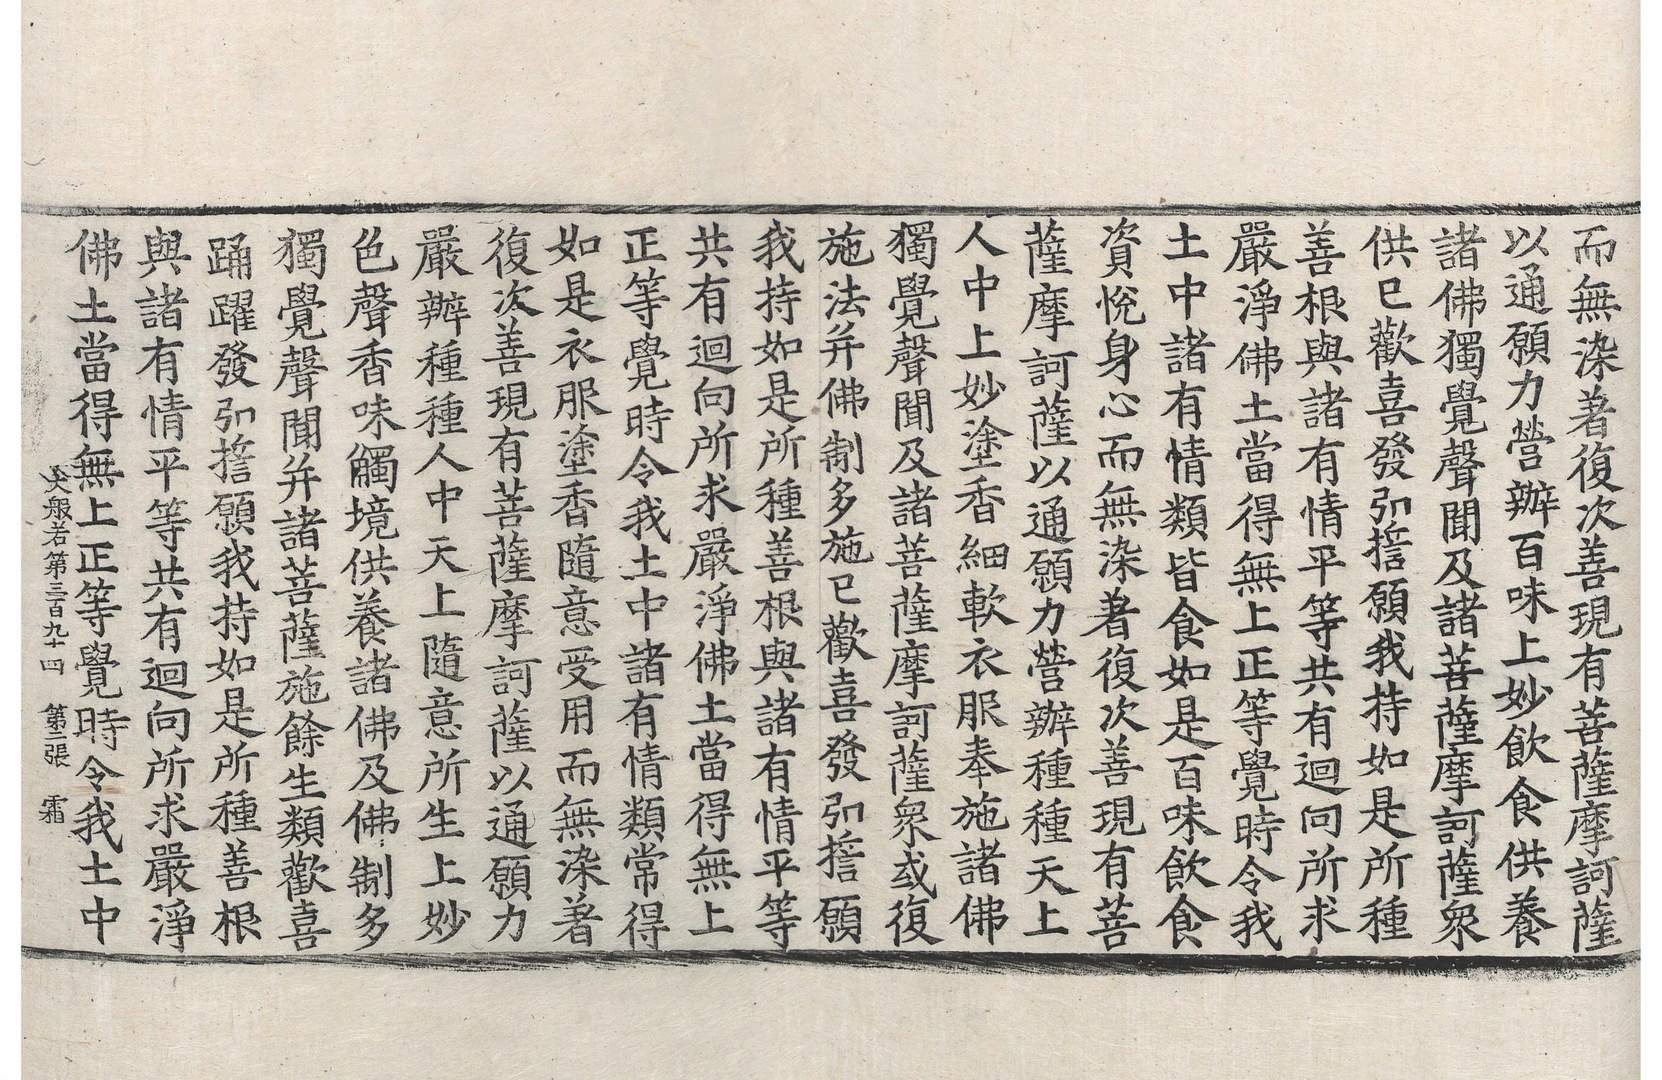 而無染著復次善現有菩薩摩訶薩
以通願力營辦百味上妙飲食供養
諸佛獨覺聲聞及諸菩薩摩訶薩衆
供已歡喜發弘誓願我持如是所種
善根與諸有情平等共有迴向所求
嚴淨佛土當得無上正等覺時令我
土中諸有情類皆食如是百味飲食
資悅身心而無染著復次善現有菩
薩摩訶薩以通願力營辦種種天上
人中上妙塗香細軟衣服奉施諸佛
獨覺聲聞及諸菩薩摩訶薩衆或復
施法并佛制多施已歡喜發弘誓願
我持如是所種善根與諸有情平等
共有迴向所求嚴淨佛土當得無上
正等覺時令我土中諸有情類常得
如是衣服塗香隨意受用而無染著
復次善現有菩薩摩訶薩以通願力
嚴辦種種人中天上隨意所生上妙
色聲香味觸境供養諸佛及佛制多
獨覺聲聞并諸菩薩施餘生類歡喜
踊躍發弘誓願我持如是所種善根
與諸有情平等共有迴向所求嚴淨
佛土當得無上正等覺時令我土中
大般若第三百九十四 第二張 霜